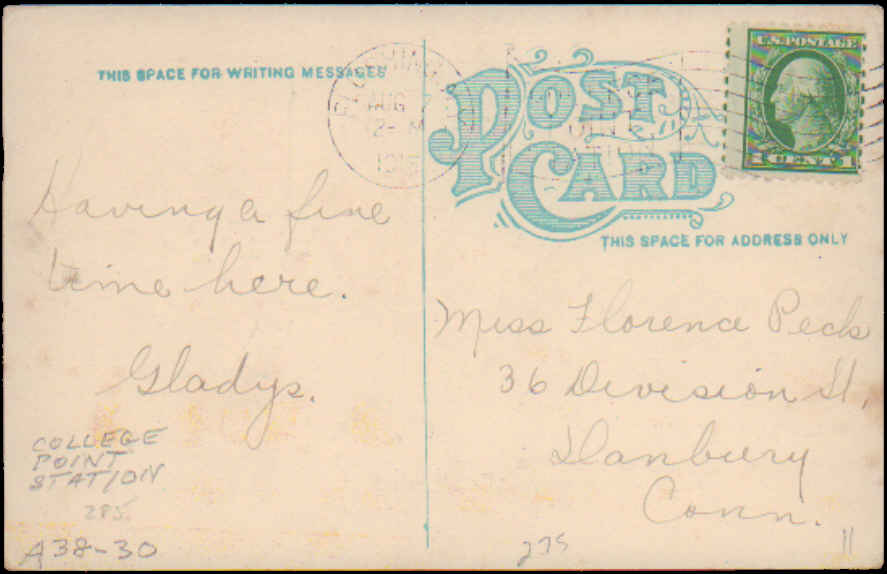 THIS SPACE FOR WRITING MESSAGES
Having a fine
time here.
Gladys.
COLLEGE
POINT
STATION
285.
A38-30
FLUSHING
AUG 7
2- M
POST
CARD
U.S. POSTAGE
1 CENT 1
THIS SPACE FOR ADDRESS ONLY
Miss Florence Peck
36 Division St,
Danbury
Conn.
275
11